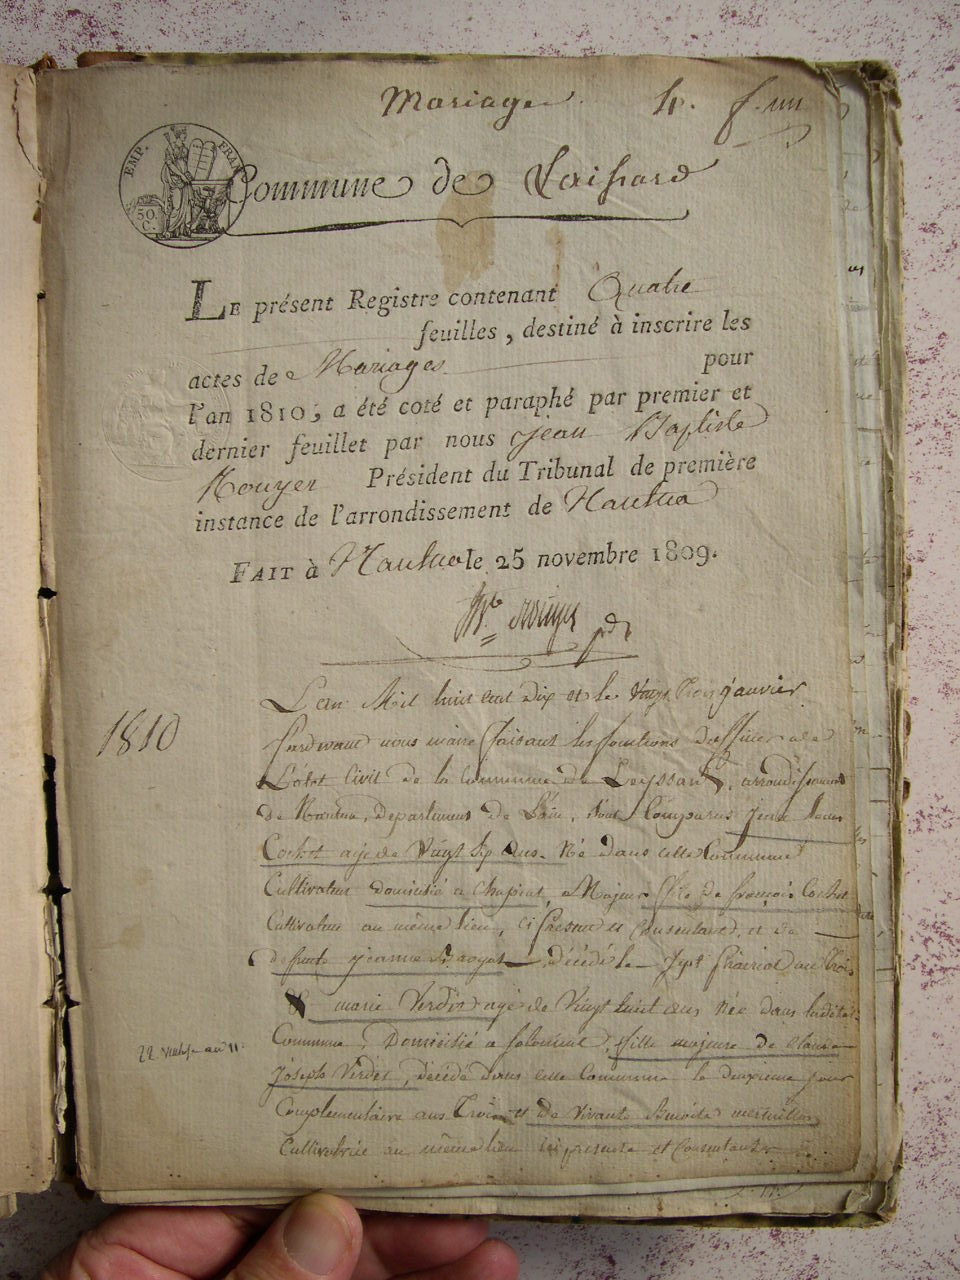 Mariages. 4. f. un
EMP. FRAN
50. C.
Commune de Laissard
LE présent Registre contenant Quatre
feuilles, destiné à inscrire les
actes de Mariages pour
l'an 1810, a été coté et paraphé par premier et
dernier feuillet par nous Jean Baptiste
Rouyer Président du Tribunal de première
instance de l'arrondissement de Nantua
FAIT à Nantua le 25 novembre 1809.
Bte Rouyer pdt
L'an Mil huit cent dix et le Vingt trois janvier
1810
Pardevant nous maire faisant les fonctions d'officier de
L'état Civil de la Commune de Leyssard, arrondissement
de Nantua, Département de L'ain, sont Comparus Jean
Cochet agé de Vingt sept ans Né dans cette Commune
Cultivateur domicilié a Majeur fils de françois Cochet
Cultivateur au même lieu, ci présent et Consentant, et de
defunte jeanne décédé le Sept
& marie Verdet agé de Vingt huit ans Née dans
Commune, Domiciliée a fille majeure de
22 an 11.
Joseph Verdet, décédé dans cette Commune le deuxieme jour
Complementaire an Trois et de Vivante
Cultivatrice au même lieu ci presente et Consentante